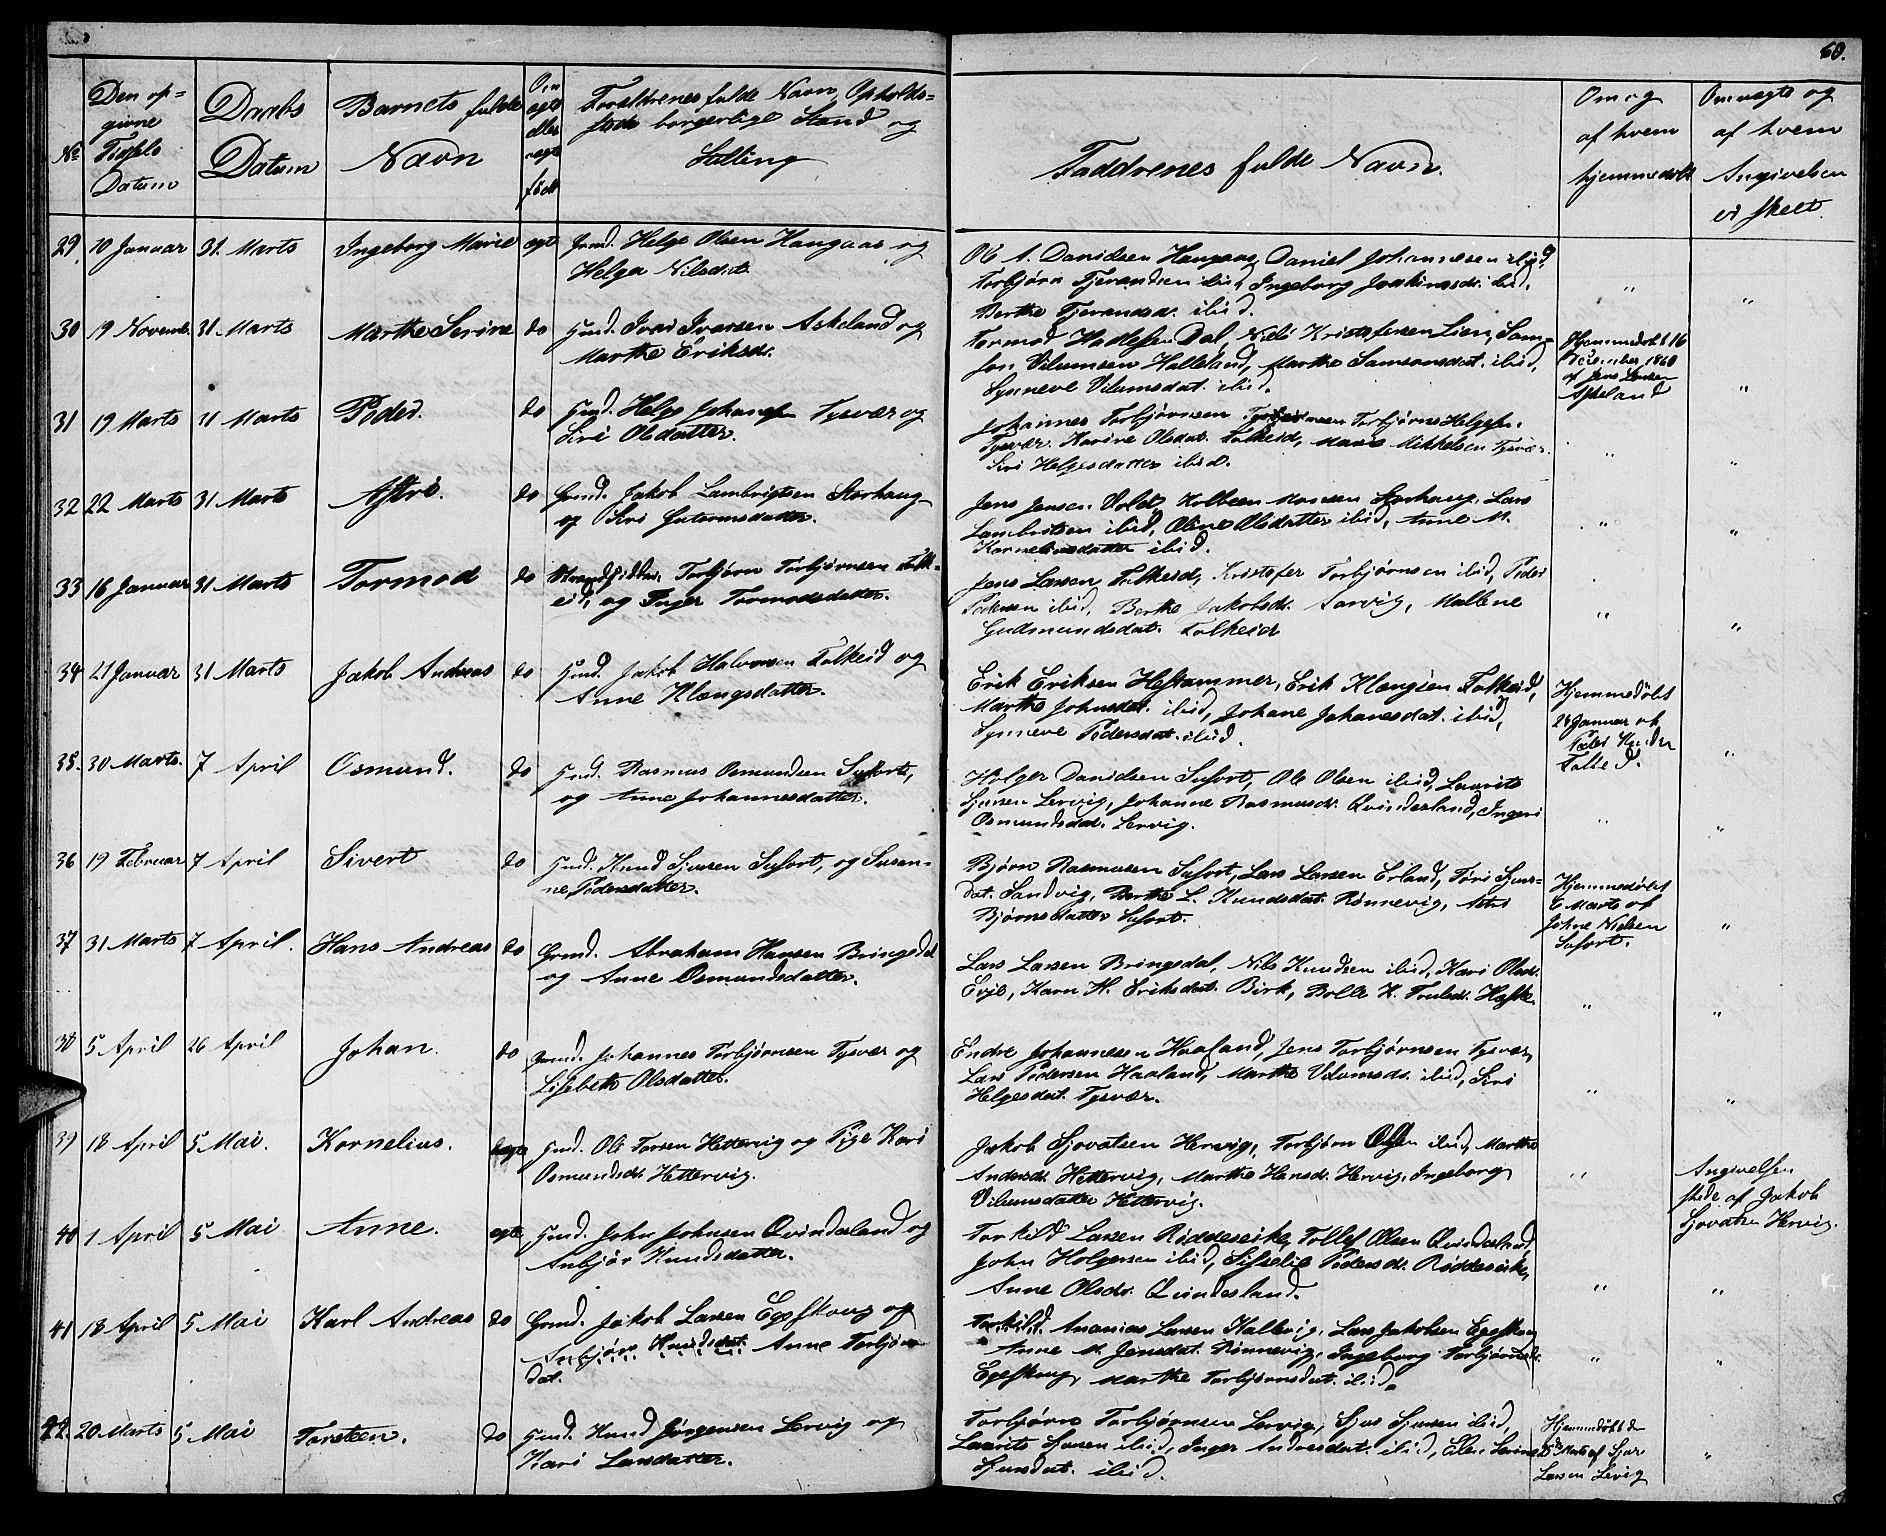 68.
No
Den op-
givne
Fødsels
Datum
Daabs
Datum
Barnets fulde
Navn
Om
egte
eller
uegte
født
Forældrenes fulde Navn, Opholds-
sted borgerlige Stand og
Stilling
Faddrenes fulde Navn.
Om og
af hvem
hjemmedøbt
Om uegte og
af hvem
Angivelsen
er skeet.
29. 10 Januar 31. Marts Ingeborg Marie egte Gmd. Helge Olsen Haugaas og
Helga Nilsdat.
Ole A. Davidsen Haugaas, Daniel Johannesen ibid,
Torbjørn Tjerandsen ibid, Ingeborg Joakimsdr. ibid.
Berthe Tjerandsdr. ibid.
" "
30 19 Novemb. 31 Marts Marthe Serine do Gmd. Ivar Ivarsen Askeland og
Marthe Eriksdr.
Tormod Dal, Nils Kristofersen Lien, Sam-
son Vilumsen Halleland, Marthe Samsonsdat. ibid,
Synneve Vilumsdat. ibid.
Hjemmedøbt 16
December 1860
af Jens Larsen
Askeland
"
31 19 Marts 31 Marts Peder. do Gmd. Helge Johansen Tysvær og
Siri Olsdatter.
Johannes Torbjørnsen Torbjørn Helgesn.
Tysvær. Karine Olsdat. Falkeid, Marie Mikkelsen Tysvær.
Siri Helgesdatter ibid.
" "
32 22 Marts 31 Marts Astri. do Gmd. Jakob Lambrigtsen Storhaug
og Siri Gutormsdatter.
Jens Jensen Vold, Kolbeen Monsen Storhaug. Lars
Lambritsen ibid, Oline Olsdatter ibid, Anne M.
Korneliusdatter ibid.
" "
33 16 Januar 31 Marts Tormod do Strandsidder Torbjørn Torbjørnsen Falk-
eid, og Inger Tormodsdatter.
Jens Larsen Falkeid, Kristofer Torbjørnsen ibid, Peder
Pedersen ibid, Berthe Jakobsdr. Aarvig, Mallene
Gudmundsdat. Falkeid
" "
34 21 Januar 31 Marts Jakob Andreas do Gmd. Jakob Halvorsen Falkeid og
Anne Klængsdatter.
Erik Eriksen Hestammer, Erik Klængsen Falkeid,
Marthe Johnsdat. ibid, Johane Johanesdat. ibid,
Synneve Pedersdat. ibid.
Hjemmedøbt
24 Januar af
Peder

"
35. 30 Marts. 7 April Osmund. do Gmd. Rasmus Osmundsen Susort,
og Anne Johannesdatter.
Holger Davidsen Susort, Ole Olsen ibid, Laurits
Sjursen Lervig, Johanne Rasmusdr. Qvindesland, Ingeri
Osmundsdat. Lervig.
" "
36 19 Februar 7 April Sivert do Gmd. Knud Sjursen Susort, og Susan-
ne Pedersdatter.
Bjørn Rasmusen Susort, Lars Larsen Erland, Tøri Sjurs-
dat. Sandvig, Berthe L. Knudsdat. Rønnevig, Astri
Bjørnsdatter Susort.
Hjemmedøbt
6 Marts af
Johne Nielsen
Susort.
"
37 31 Marts 7 April. Hans Andreas do Gmd. Abraham Hansen Bringedal
og Anne Osmundsdatter.
Lars Larsen Bringsdal, Nils Knudsen ibid, Kari Olsdr.
Evje, Karn H. Eriksdat. Birk,
" "
38 5 April 26 April Johan. do Gmd. Johannes Torbjørnsen Tysvær og
Lisebeth Olsdatter.
Endre Johannesen Haaland, Jens Torbjørnsen Tysvær,
Lars Pedersen Haaland, Marthe Vilumsdr. ibid, Siri
Helgesdat. Tysvær.
" "
39 18 April 5 Mai. Kornelius. uegte Gmd. Ole Torsen Hettervig og Pige Kari
Osmundsdr. Hettervig.
Jakob Sjovatsen Hervig, Torbjørn Olsen ibid, Marthe
Andersdr. Hettervig, Marthe Hansdr. Hervig, Ingeborg
Vilumsdatter Hettervig.
"
Angivelsen
skede af Jakob
Sjovatsn Hervig.
40 1 April 5 Mai Anne. egte Gmd. John Johnsen Qvindesland og
Anbjør Knudsdatter.
Torkild Larsen Røddesvike, Tollef Olsen Qvindesland,
John Holgersen ibid, Sisselie Pedersdr. Røddesvike,
Anne Olsdr. Qvindesland.
" "
41 18 April 5 Mai Karl Andreas do Gmd. Jakob Larsen Egeskoug og
Anbjør Knudsdat. Anne Torbjørns-
dat.
Torkild. Ananias Larsen Kallevig, Lars Jakobsen Egeskoug
Anne M. Jensdat. Rønnevig, Ingeborg Torbjørnsdr.
Egeskoug, Marthe Torbjørnsdat. ibid.
" "
42. 20 Marts 5 Mai Torsteen. do Gmd. Knud Jørgensen Lervig og
Kari Larsdatter.
Torbjørn Torbjørnsen Lervig, Sjur Sjursen ibid,
Laurits Sjursen ibid, Inger Andresdat. ibid, Elen Serine
Sjursdat. ibid.
Hjemmedøbt de
25de Marts af Sjur
Larsen Levig
"